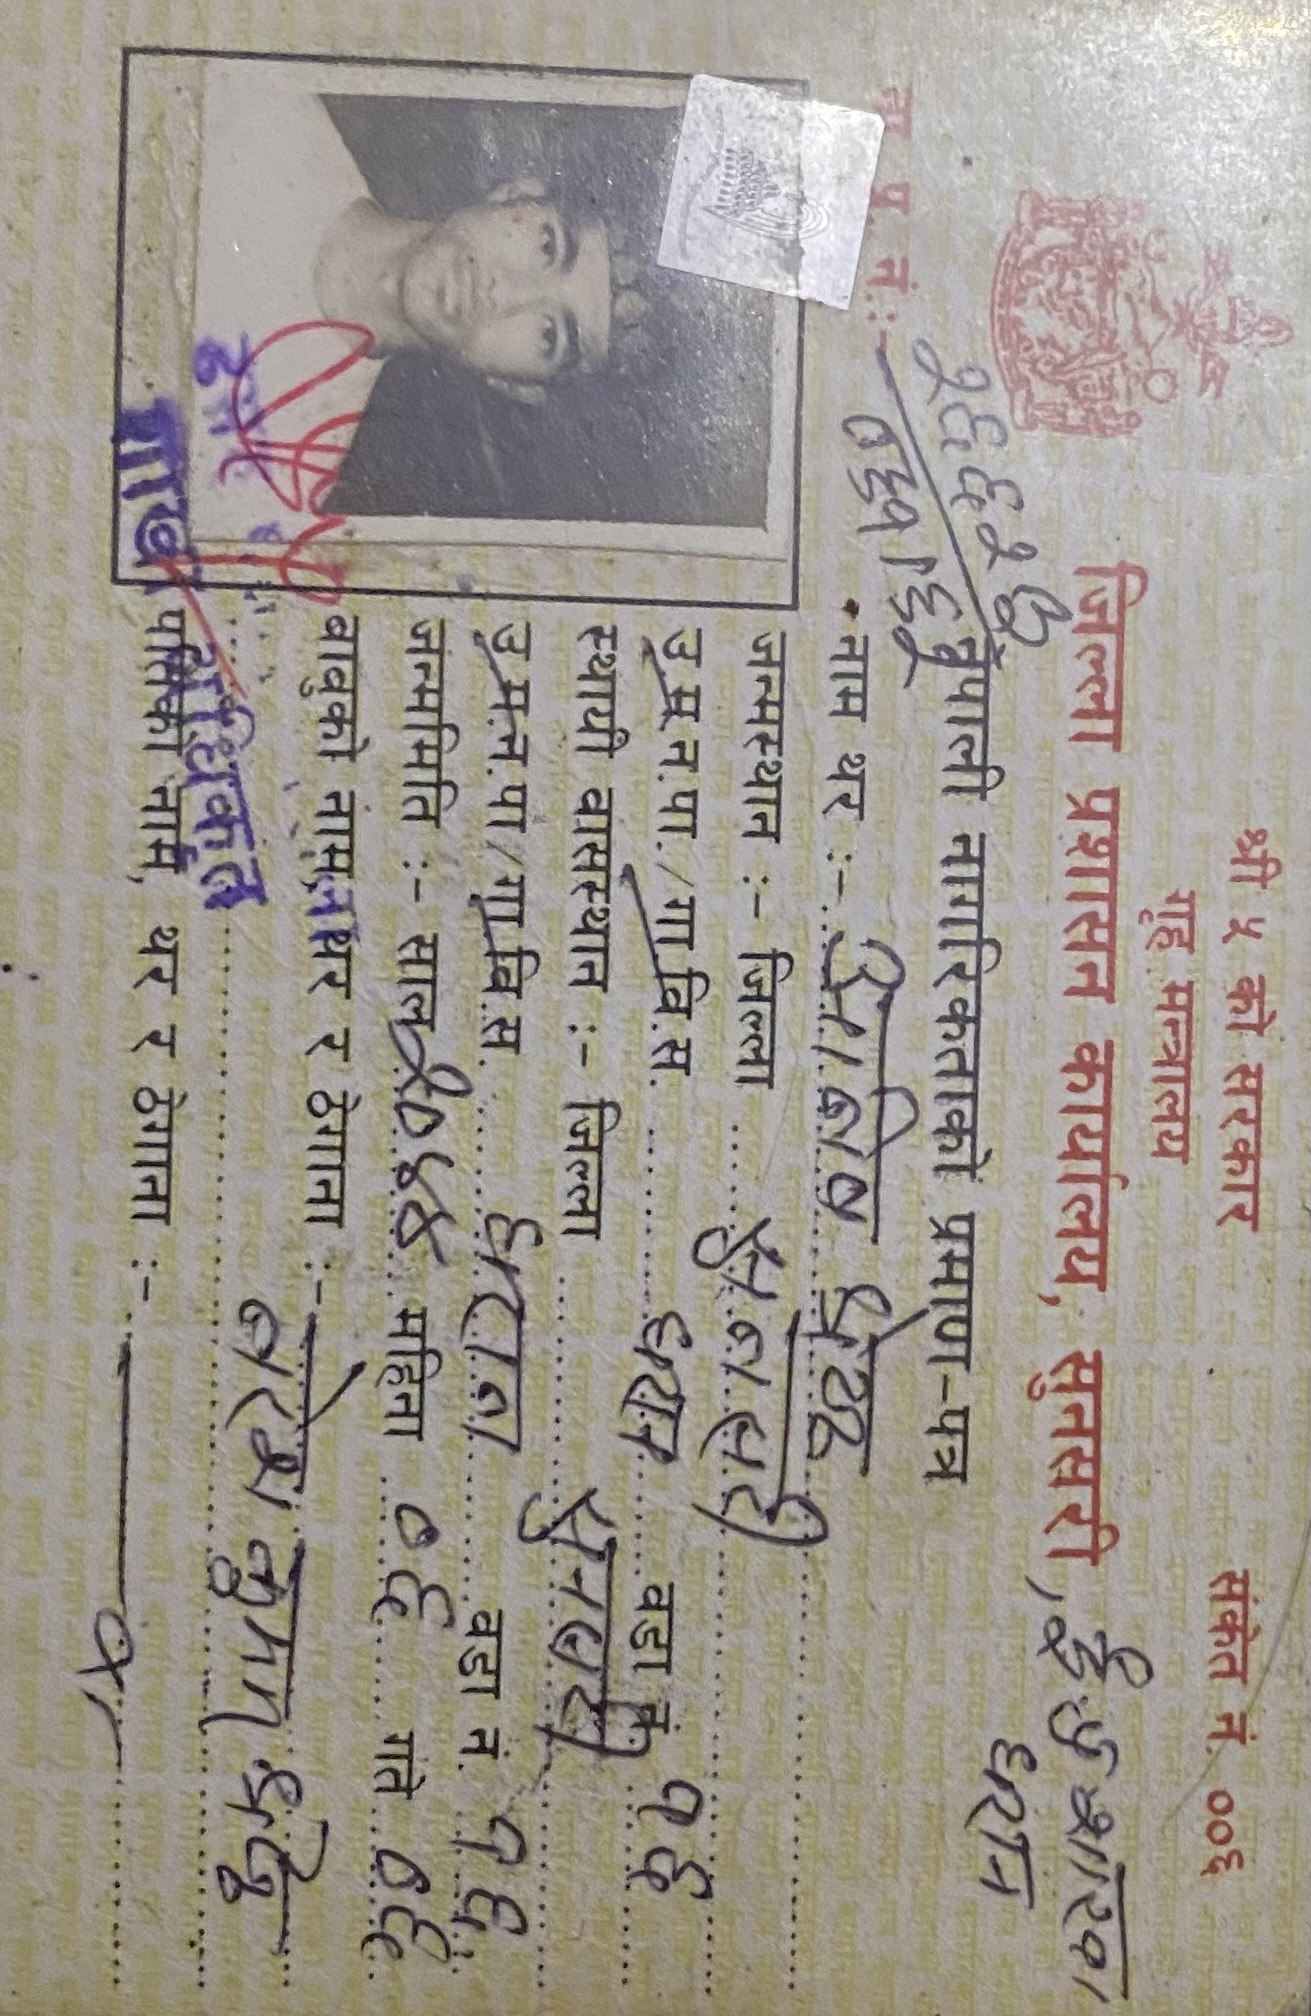 श्री ५ को सरकार
संकेत नं. ००६
गृह मन्त्रालय
जिल्ला प्रशासन कार्यालय, सुनसरी, ई.प्र शाखा
धरान
नेपाली नागरिकताको प्रमाण-पत्र
ना. प्र. नं.:-
०६१।६२
नाम थर :- आनिष श्रेष्ठ
जन्मस्थान :- जिल्ला सुनसरी
उ.म.न.पा./गा.वि.स. धरान वडा नं. १६
स्थायी वासस्थान :- जिल्ला सुनसरी
उ.म.न.पा/गा.वि.स. धरान वडा नं. १६
जन्ममिति :- साल २०४४ महिना ०६ गते ०६
बाबुको नाम, थर र ठेगाना :-
नरेश कुमार श्रेष्ठ
अधिकृत
शाखा
पतिको नाम, थर र ठेगाना :-